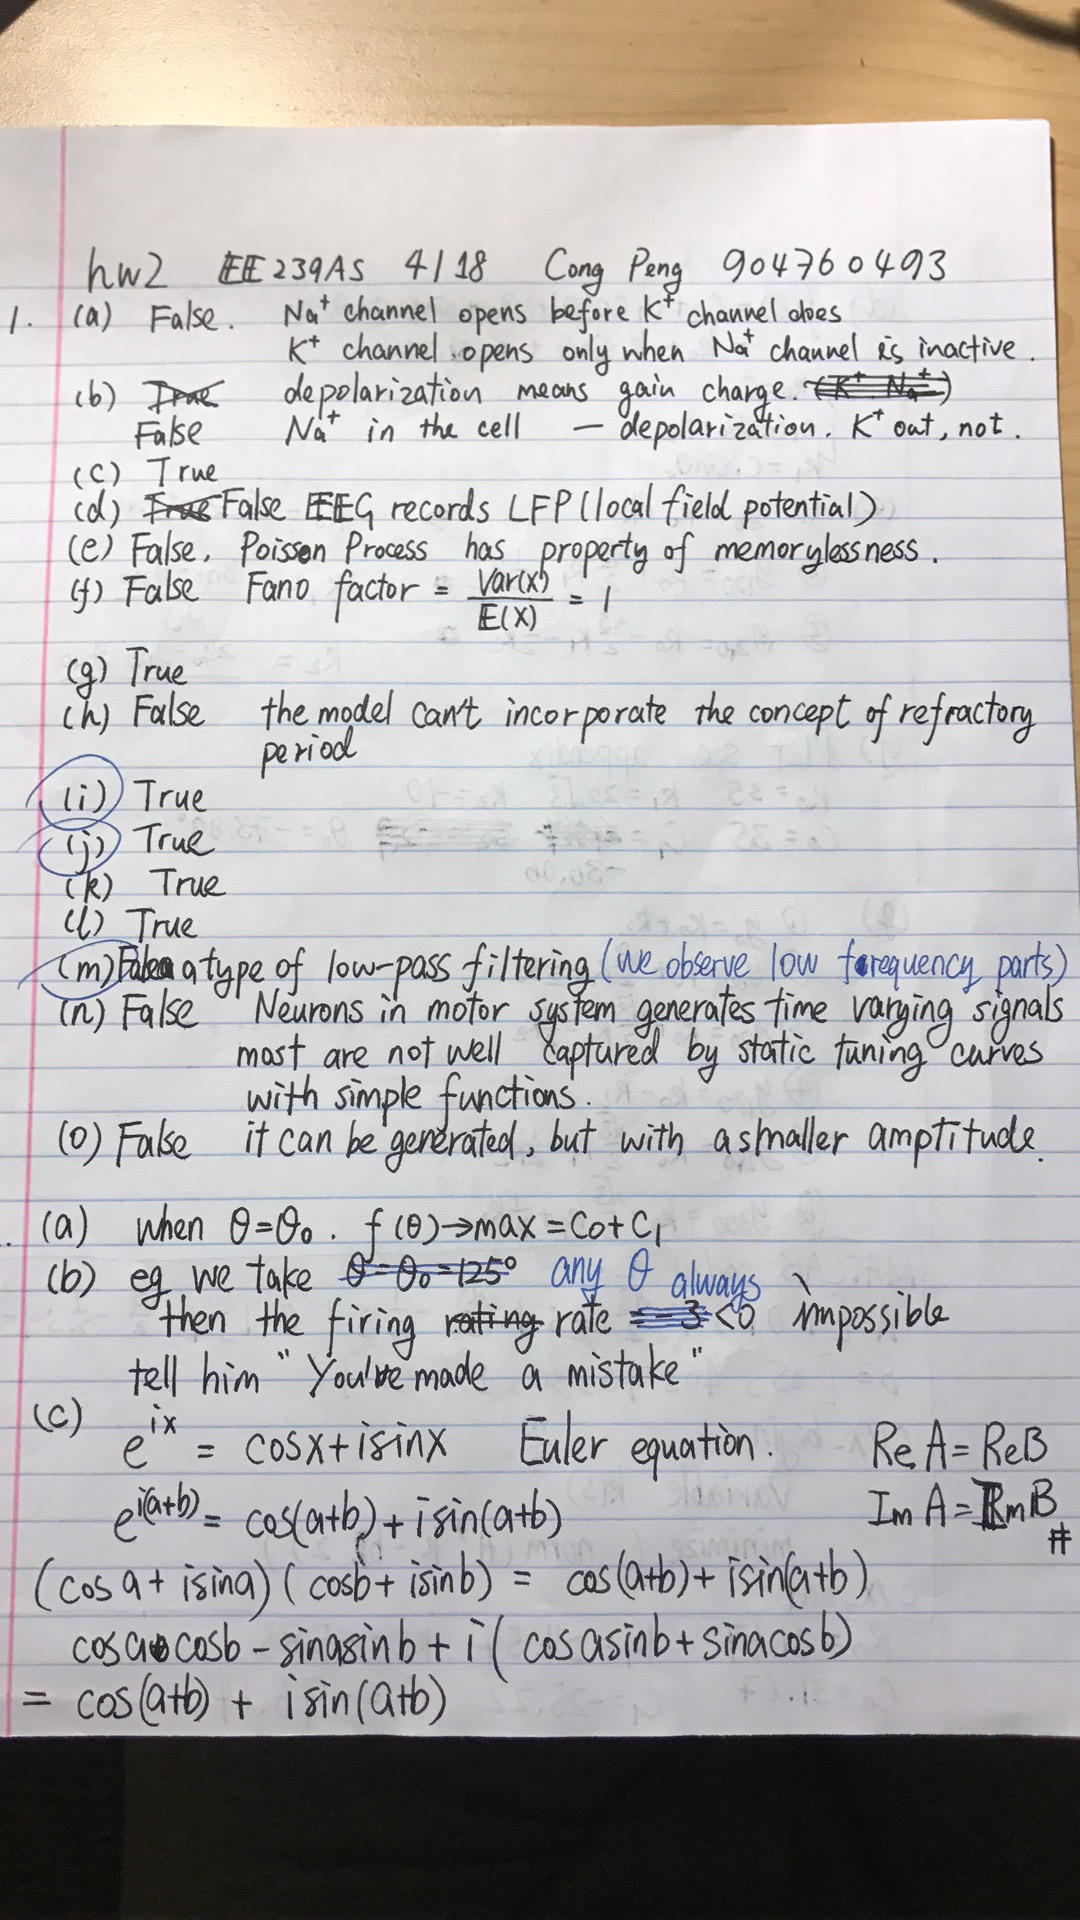 hw2 EE239AS 4/18 Cong Peng 904760493
1. (a) False. Na⁺ channel opens before K⁺ channel does
K⁺ channel opens only when Na⁺ channel is inactive.
(b) True depolarization means gain charge. (K⁺ Na⁺)
False Na⁺ in the cell — depolarization. K⁺ out, not.
(c) True
(d) True False EEG records LFP (local field potential)
(e) False. Poisson Process has property of memorylessness.
(f) False Fano factor = Var(x)/E(X) = 1
(g) True
(h) False the model can't incorporate the concept of refractory
period
(i) True
(j) True
(k) True
(l) True
(m) False a type of low-pass filtering (we observe low frequency parts)
(n) False Neurons in motor system generates time varying signals
most are not well captured by static tuning curves
with simple functions.
(o) False it can be generated, but with a smaller amptitude.
(a) when θ=θ₀. f(θ)→max = C₀+C₁
(b) eg we take θ=θ₀=125° any θ always
then the firing rating rate = -3 <0 impossible
tell him "You've made a mistake"
(c) e^{ix} = cosx+isinx Euler equation. Re A = Re B
e^{i(a+b)} = cos(a+b)+isin(a+b) Im A = Im B #
(cos a + isina)(cosb+isinb) = cos(a+b)+isin(a+b)
cosa cosb - sinasinb + i(cosasinb+sinacosb)
= cos(a+b) + isin(a+b)